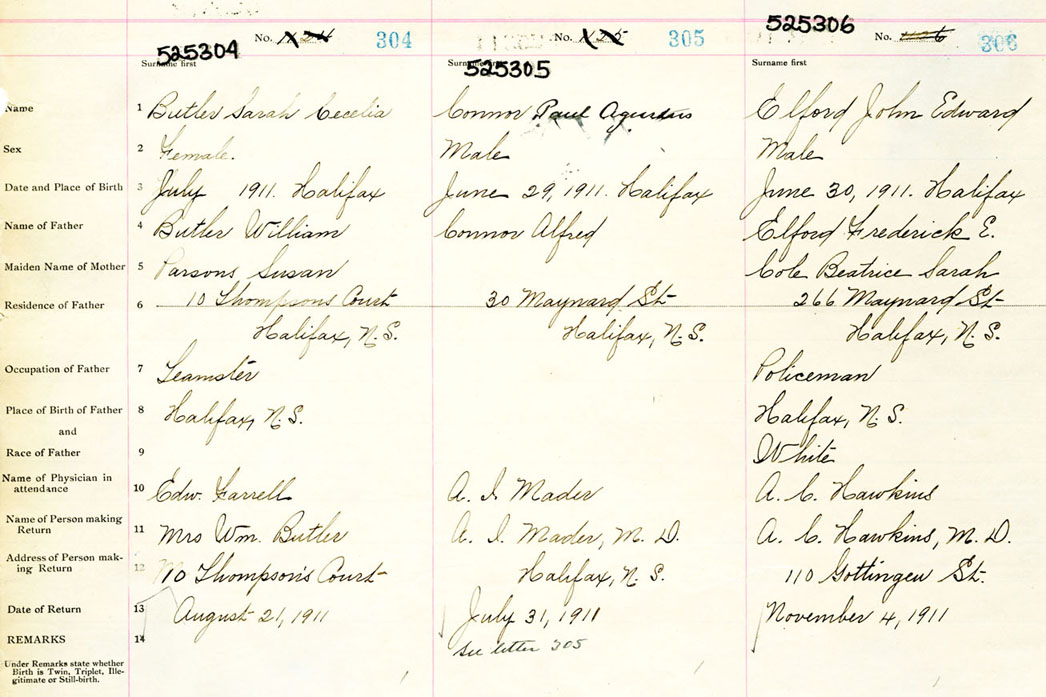 525304 No. 1124 304
525305 No. 1125 305
525306 No. 1126 306
Surname first Surname first Surname first
Name 1 Butler Sarah Cecelia Connor Paul Agustus Elford John Edward
Sex 2 Female. Male Male
Date and Place of Birth 3 July 1911. Halifax June 29, 1911. Halifax June 30, 1911. Halifax
Name of Father 4 Butler William Connor Alfred Elford Frederick E.
Maiden Name of Mother 5 Parsons Susan Cole Beatrice Sarah
Residence of Father 6 10 Thompsons Court 30 Maynard St 266 Maynard St
Halifax, N.S. Halifax, N.S. Halifax, N.S.
Occupation of Father 7 Teamster Policeman
Place of Birth of Father 8 Halifax, N.S. Halifax, N.S.
and
Race of Father 9 White
Name of Physician in
attendance 10 Edw. Farrell A. I. Mader A. C. Hawkins
Name of Person making
Return 11 Mrs Wm. Butler A. I. Mader, M.D. A. C. Hawkins, M.D.
Address of Person mak-
ing Return 12 10 Thompson's Court Halifax, N.S. 110 Gottingen St.
Date of Return 13 August 21, 1911 July 31, 1911 November 4, 1911
REMARKS 14 See letter 305
Under Remarks state whether
Birth is Twin, Triplet, Ille-
gitimate or Still-birth.